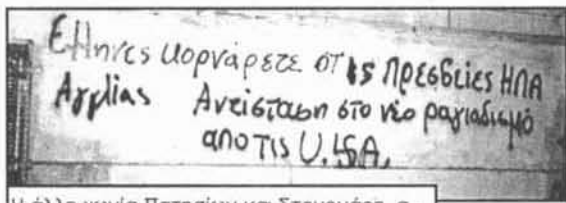 Έλληνες κορνάρετε στις πρεσβείες ΗΠΑ
Αγγλίας Αντίσταση στο νέο ραγιαδισμό
απο τις U.S.A.
Η άλλη γωνία Πατησίων και Στουρνάρη